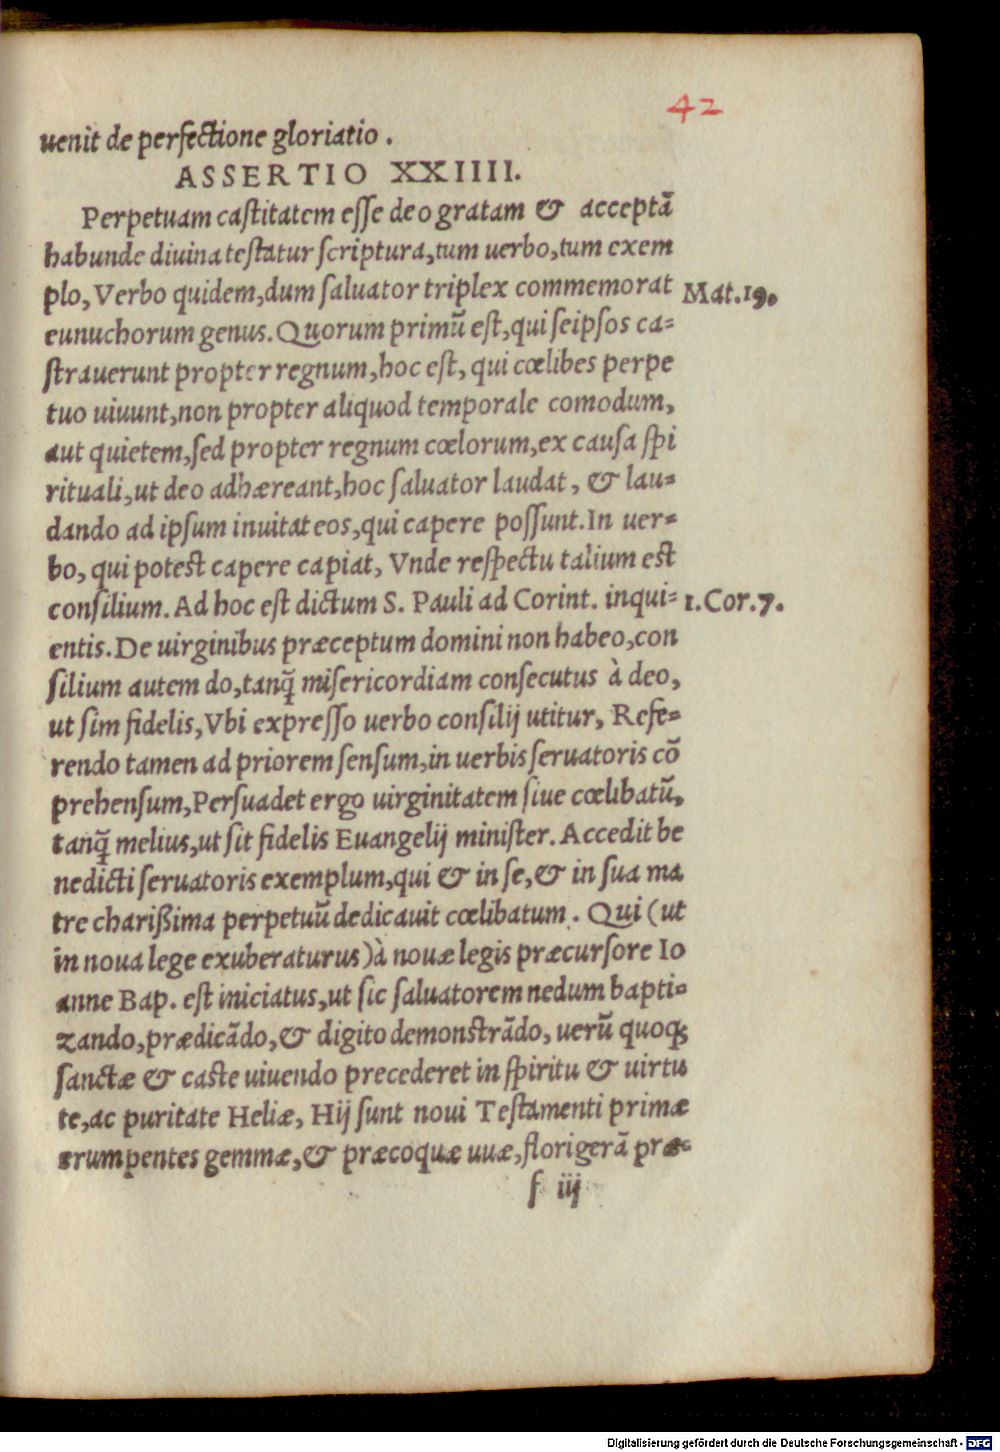 42
uenit de perfectione gloriatio.
ASSERTIO XXIIII.
Perpetuam castitatem esse deo gratam & acceptã
habunde diuina testatur scriptura, tum uerbo, tum exem
plo, Verbo quidem, dum saluator triplex commemorat
Mat.19.
eunuchorum genus. Quorum primũ est, qui seipsos ca=
strauerunt propter regnum, hoc est, qui cœlibes perpe
tuo uiuunt, non propter aliquod temporale comodum,
aut quietem, sed propter regnum cœlorum, ex causa spi
rituali, ut deo adhæreant, hoc saluator laudat, & lau=
dando ad ipsum inuitat eos, qui capere possunt. In uer=
bo, qui potest capere capiat, Vnde respectu talium est
consilium. Ad hoc est dictum S. Pauli ad Corint. inqui=
1.Cor.7.
entis. De uirginibus præceptum domini non habeo, con
silium autem do, tanq̃ misericordiam consecutus à deo,
ut sim fidelis, Vbi expresso uerbo consilij utitur, Refe=
rendo tamen ad priorem sensum, in uerbis seruatoris cõ
prehensum, Persuadet ergo uirginitatem siue cœlibatũ,
tanq̃ melius, ut sit fidelis Euangelij minister. Accedit be
nedicti seruatoris exemplum, qui & in se, & in sua ma
tre charißima perpetuũ dedicauit cœlibatum. Qui (ut
in noua lege exuberaturus) à nouæ legis præcursore Io
anne Bap. est iniciatus, ut sic saluatorem nedum bapti=
zando, prædicãdo, & digito demonstrãdo, uerũ quoqꝫ
sanctæ & caste uiuendo precederet in spiritu & uirtu
te, ac puritate Heliæ, Hij sunt noui Testamenti primæ
erumpentes gemmæ, & præcoquæ uuæ, florigerã præ=
f iij
Digitalisierung gefördert durch die Deutsche Forschungsgemeinschaft - DFG